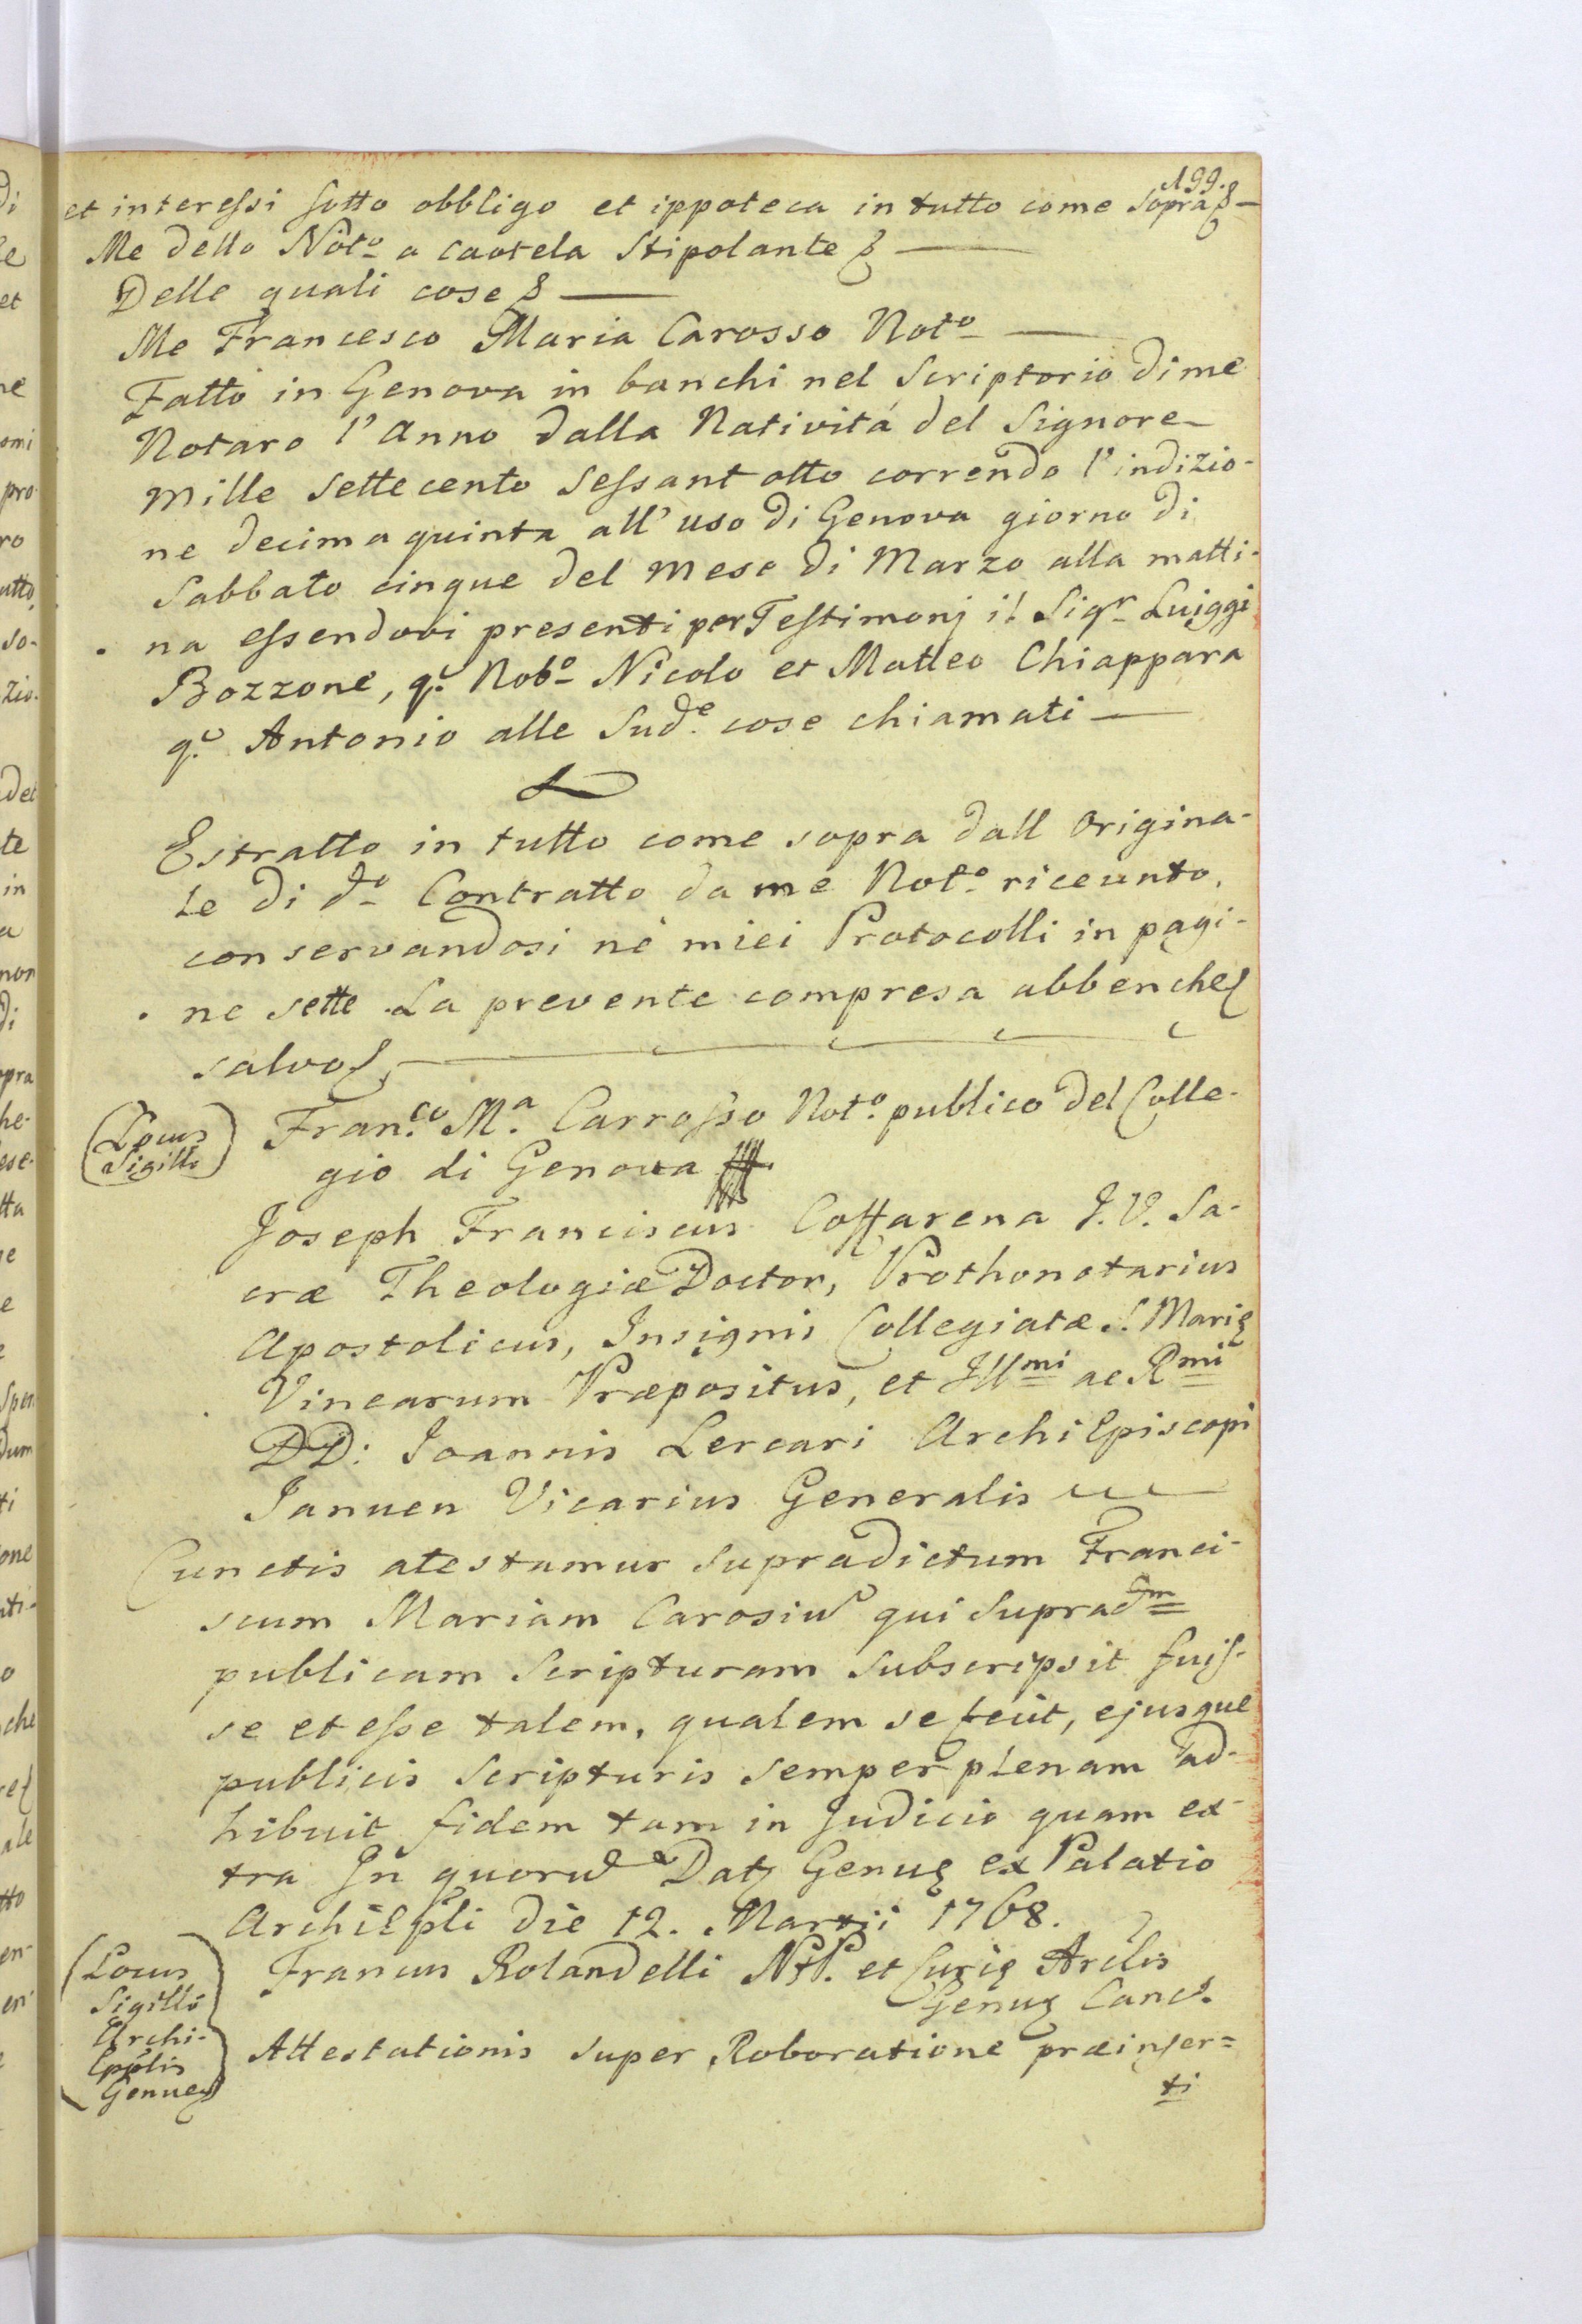 199.
et interessi sotto obbligo et ippoteca in tutto come sopra
Me detto Noto a cautela stipolante
Delle quali cose
Me Francesco Maria Carosso Noto
Fatto in Genova in banchi nel scriptorio di me
Notaro l'Anno dalla Nativitá del Signore
mille settecento sessant otto correndo l'indizio-
ne decima quinta all' uso di Genova giorno di
Sabbato cinque del Mese di Marzo alla matti-
na essendovi presenti per Testimonj il Sigr Luiggi
Bozzone, q. Nobo Nicolo et Matteo Chiappara
q. Antonio alle Sude. cose chiamati
Estratto in tutto come sopra dall Origina-
le di do Contratto da me Noto riceunto,
conservandosi né miei Protocolli in pagi-
ne sette La prevente compresa abbenche
salvo
(Locus Sigilli)
Fran.co M.a Carrosso Noto publico del Colle-
gio di Genova
Joseph Franciscus Coffarena J. V. Sa-
cræ Theologiæ Doctor, Prothonotarius
Apostolicus, Insignis Collegiatæ S. Marię
Vinearum Præpositus, et Illmi ac Rmi
DD: Joannis Lercari Archi Episcopi
Januen Vicarius Generalis
Cunctis atestamur supradictum Franci-
scum Mariam Carosiu qui Supradm
publicam Scripturam subscripsit fuis-
se et esse talem, qualem se fecit, ejusque
publicis scripturis semper plenam ad-
hibuit fidem tam in Judicio quam ex-
tra In quoru Datę Genuę ex Palatio
Archiepli die 12. Martii 1768.
(Locus
Sigilli
Archi-
Epplis
Genue)
Francus Rolandelli et Curię Arclis
Genuę Canc.
Attestationis super Roboratione præinser=
ti